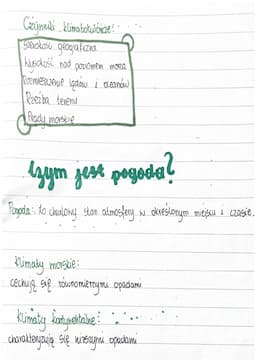 Czynniki klimatotwórcze:
Szerokość geograficzna
Wysokość nad poziomem morza
Rozmieszczenie lądów i oceanów
Rzeźba terenu
Prądy morskie
Czym jest pogoda?
Pogoda: to chwilowy stan atmosfery w określonym miejscu i czasie.
Klimaty morskie:
cechują się równomiernymi opadami
Klimaty kontynentalne:
charakteryzują się niższymi opadami